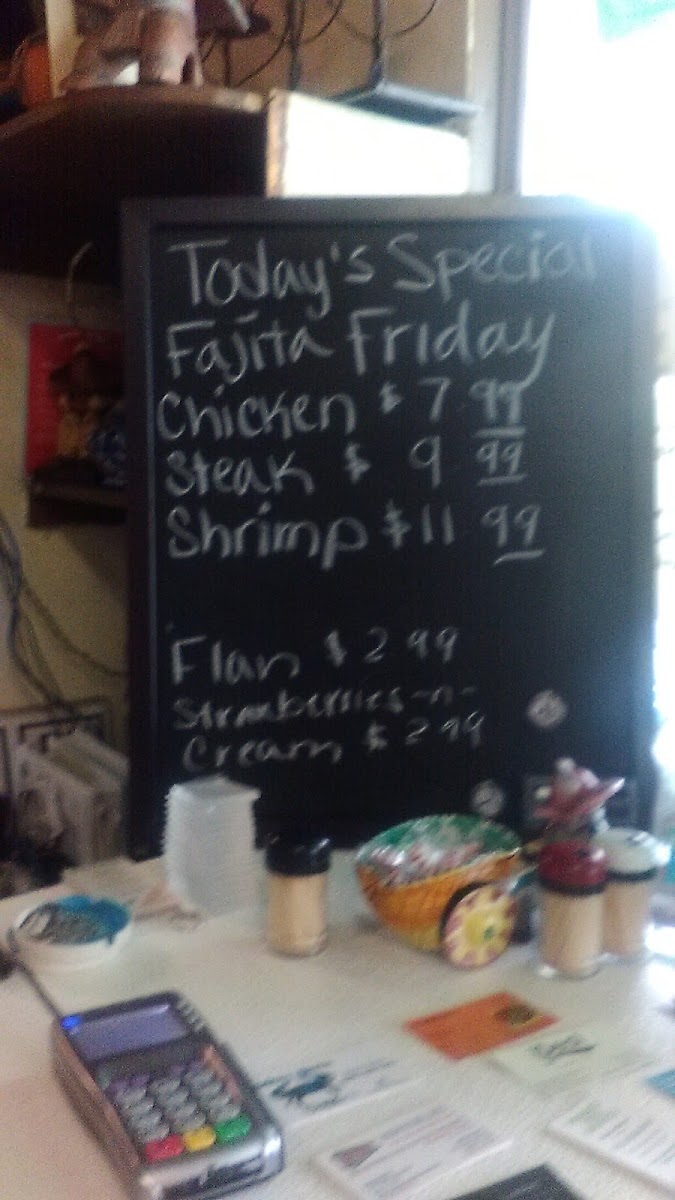 Today's Special
Fajita Friday
Chicken $ 7 99
Steak $ 9 99
Shrimp $11 99
Flan $ 2 99
Strawberries-n-
Cream $ 2 99